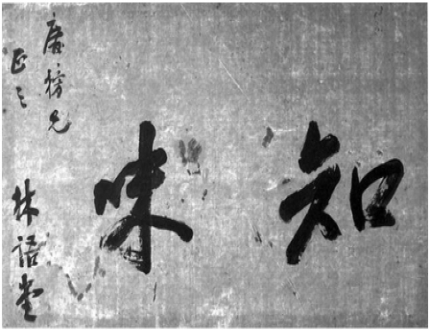 知味
唐榜兄
正之
林語堂